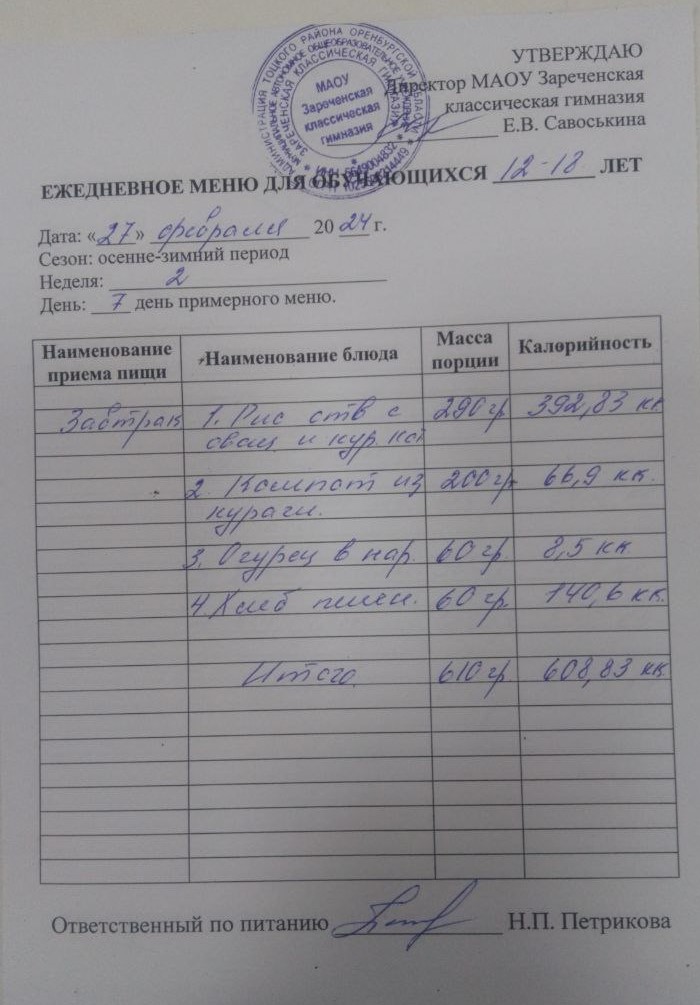 УТВЕРЖДАЮ
Директор МАОУ Зареченская
классическая гимназия
Е.В. Савоськина
МАОУ
Зареченская
классическая
гимназия
ЕЖЕДНЕВНОЕ МЕНЮ ДЛЯ ОБУЧАЮЩИХСЯ 12-18 ЛЕТ
Дата: «27» февраля 2024 г.
Сезон: осенне-зимний период
Неделя: 2
День: 7 день примерного меню.
Наименование приема пищи Наименование блюда Масса порции Калорийность
Завтрак 1. Рис отв с 290 гр 392,83 кк
овощ и кур.кот
2. Компот из 200 гр. 66,9 кк.
кураги.
3. Огурец в нар. 60 гр. 8,5 кк
4. Хлеб пшен. 60 гр. 140,6 кк.
Итого 610 гр 608,83 кк.
Ответственный по питанию Н.П. Петрикова